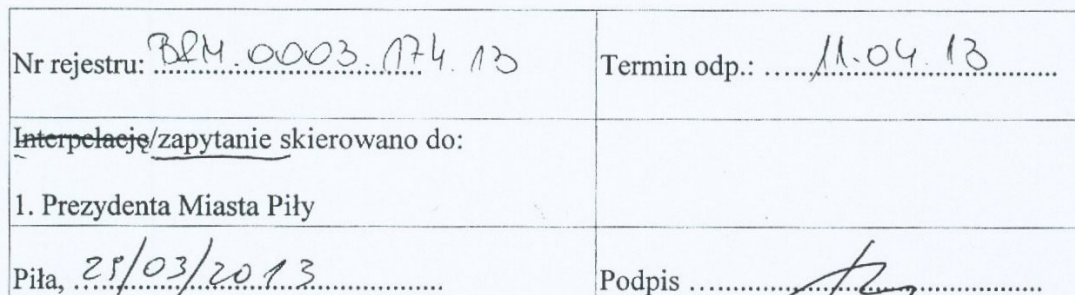 Nr rejestru: BRM.0003.174.13
Termin odp.: 11.04.13
Interpelację/zapytanie skierowano do:
1. Prezydenta Miasta Piły
Piła, /03/2013
Podpis